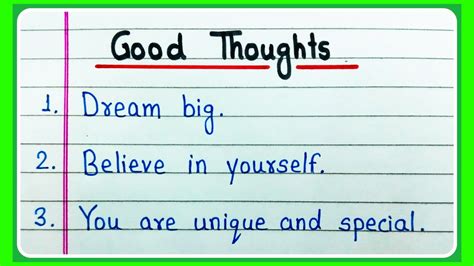 Good Thoughts
1. Dream big.
2. Believe in yourself.
3. You are unique and special.